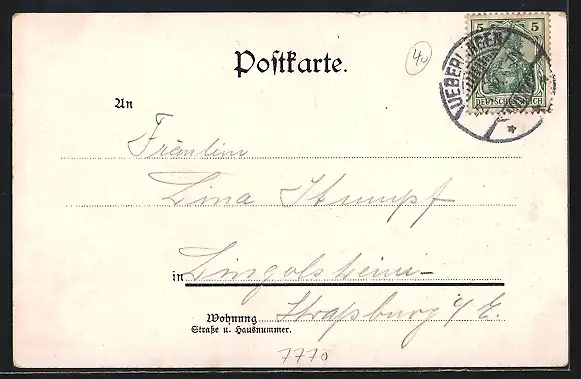 Postkarte.
40
5 5
DEUTSCHES REICH
UEBERLINGEN
An
Fräulein
Lina Stumpf
in Lingolsheim-
Straßburg i/E.
Wohnung
Straße u. Hausnummer.
7770